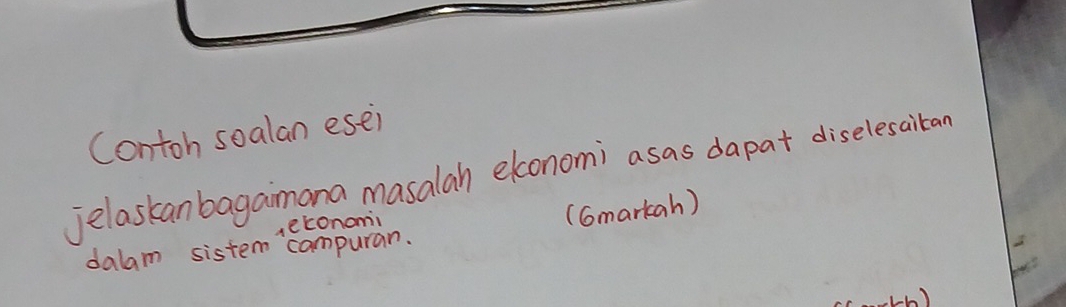 Contoh soalan esei
jelaskan bagaimana masalah ekonomi asas dapat diselesaikan
dalam sistem ekonomi campuran. (6markah)